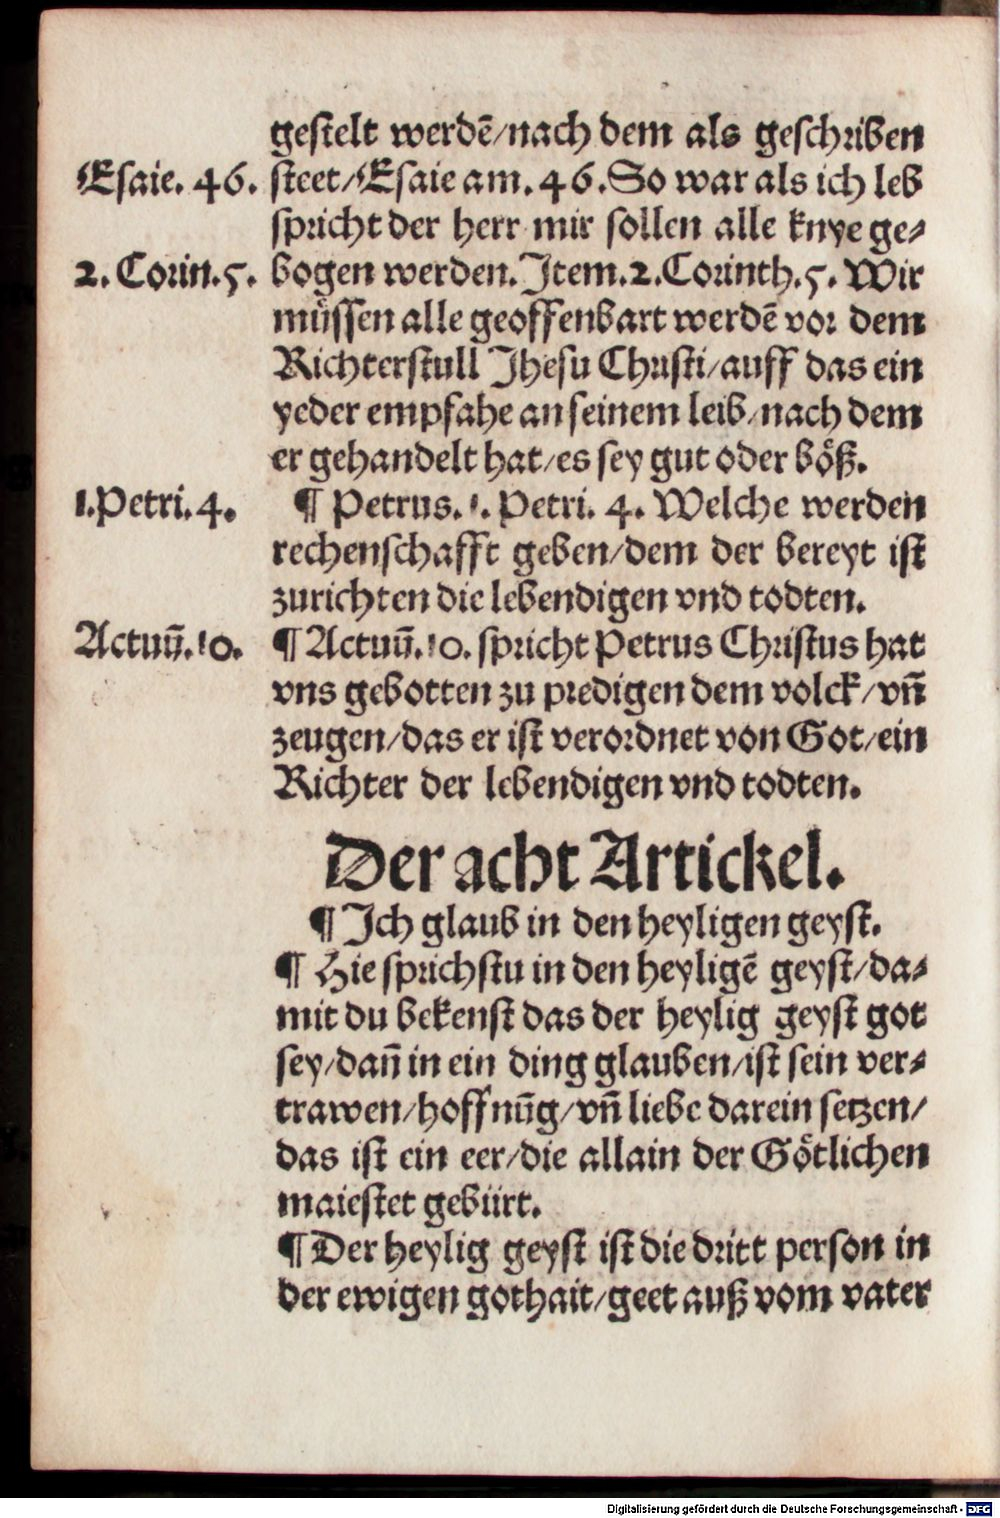 gestelt werdē/nach dem als geschriben
Esaie. 46.
steet/Esaie am. 46. So war als ich leb
spricht der herr mir sollen alle knye ge⸗
2. Corin. 5.
bogen werden. Item. 2. Corinth. 5. Wir
müssen alle geoffenbart werdē vor dem
Richterstull Jhesu Christi/auff das ein
yeder empfahe an seinem leib/nach dem
er gehandelt hat/es sey gut oder böß.
1. Petri. 4.
¶ Petrus. 1. Petri. 4. Welche werden
rechenschafft geben/dem der bereyt ist
zurichten die lebendigen vnd todten.
Actuū. 10.
¶ Actuū. 10. spricht Petrus Christus hat
vns gebotten zu predigen dem volck/vn̄
zeugen/das er ist verordnet von Got/ein
Richter der lebendigen vnd todten.
Der acht Artickel.
¶ Ich glaub in den heyligen geyst.
¶ Hie sprichstu in den heyligē geyst/da⸗
mit du bekenst das der heylig geyst got
sey/dan̄ in ein ding glauben/ist sein ver⸗
trawen/hoffnūg/vn̄ liebe darein setzen/
das ist ein eer/die allain der Götlichen
maiestet gebürt.
¶ Der heylig geyst ist die dritt person in
der ewigen gothait/geet auß vom vater
Digitalisierung gefördert durch die Deutsche Forschungsgemeinschaft - DFG